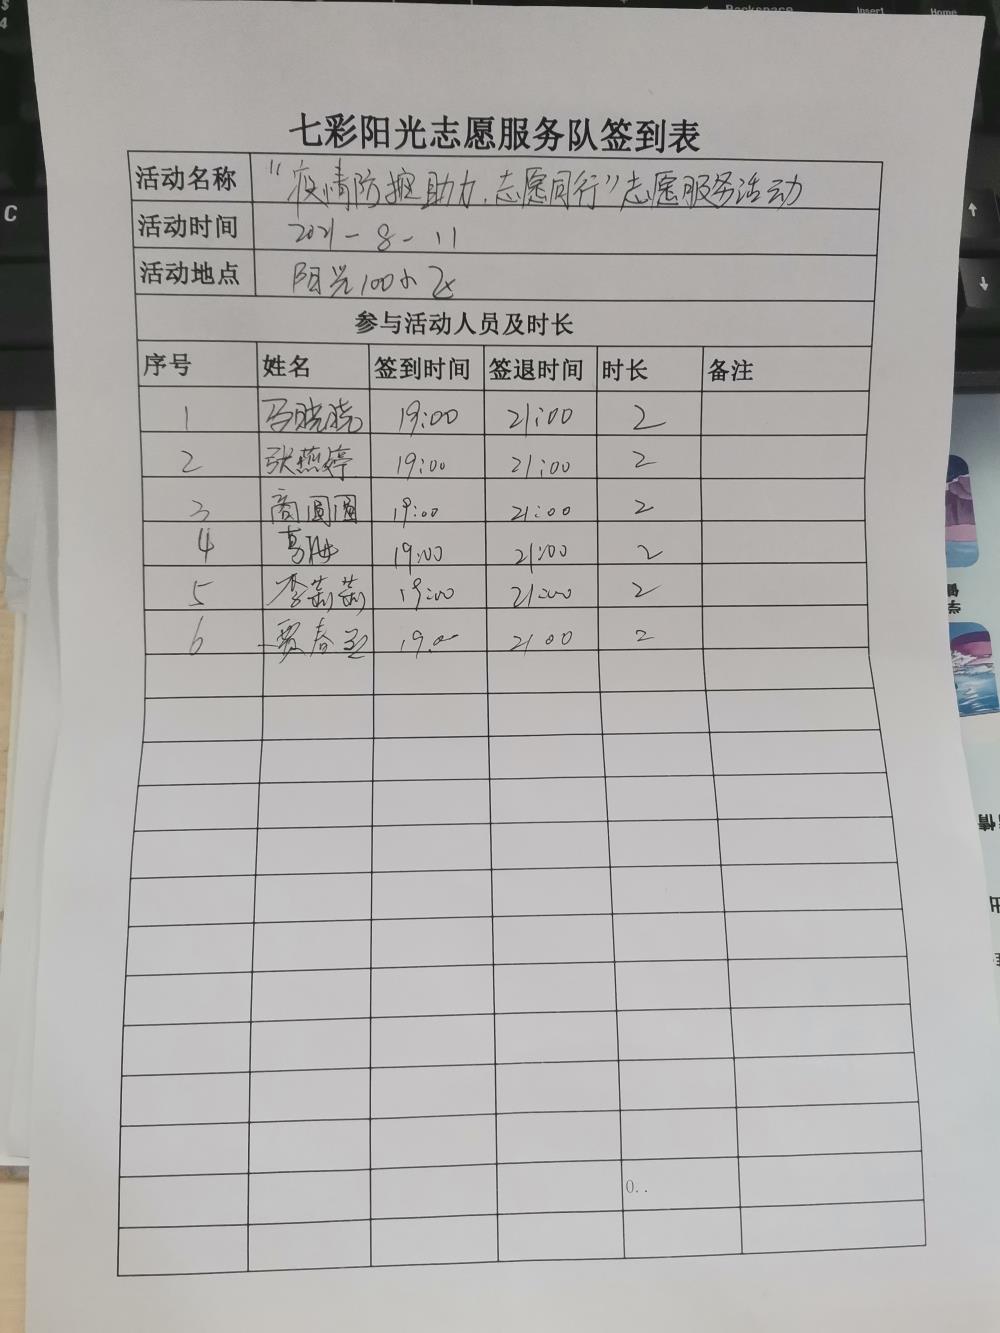 Backspace
Insert
Home
C
七彩阳光志愿服务队签到表
活动名称 "疫情防控助力,志愿同行"志愿服务活动
活动时间 2021-8-11
活动地点 阳光100小区
参与活动人员及时长
序号 姓名 签到时间 签退时间 时长 备注
1 马晓晓 19:00 21:00 2
2 张燕婷 19:00 21:00 2
3 商圆圆 19:00 21:00 2
4 葛梅 19:00 21:00 2
5 李茹茹 19:00 21:00 2
6 贾春玉 19:00 21:00 2
0..